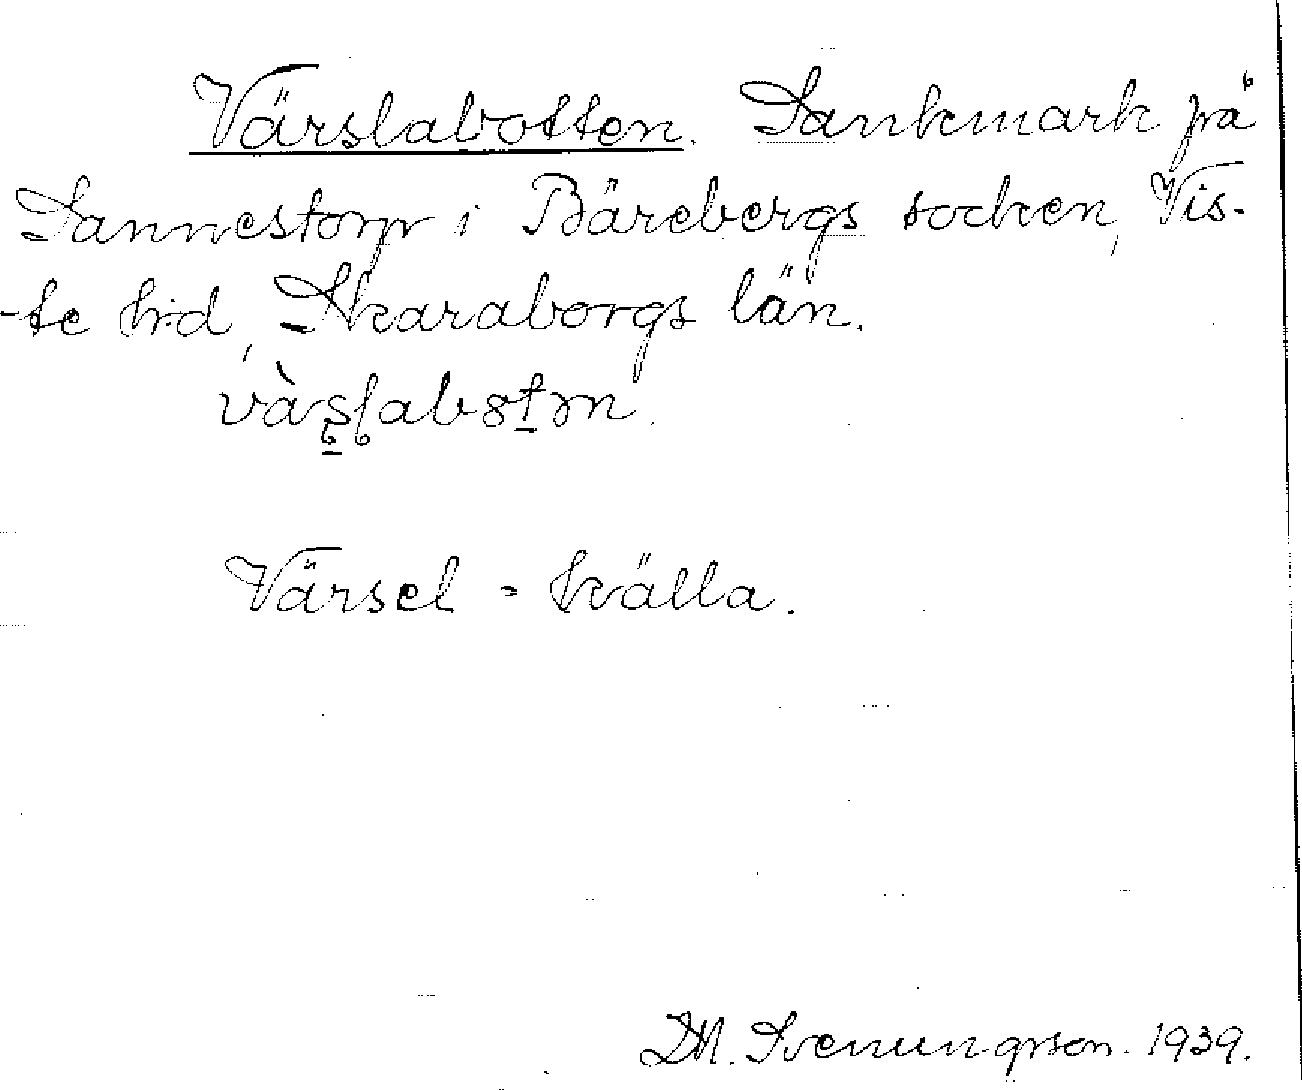 Värslabotten. Sankmark på
Sannestorp i Bärebergs socken, Vis-
-te h:d, Skaraborgs län.
Värsel = källa.
D.M. Svenungsson. 1939.